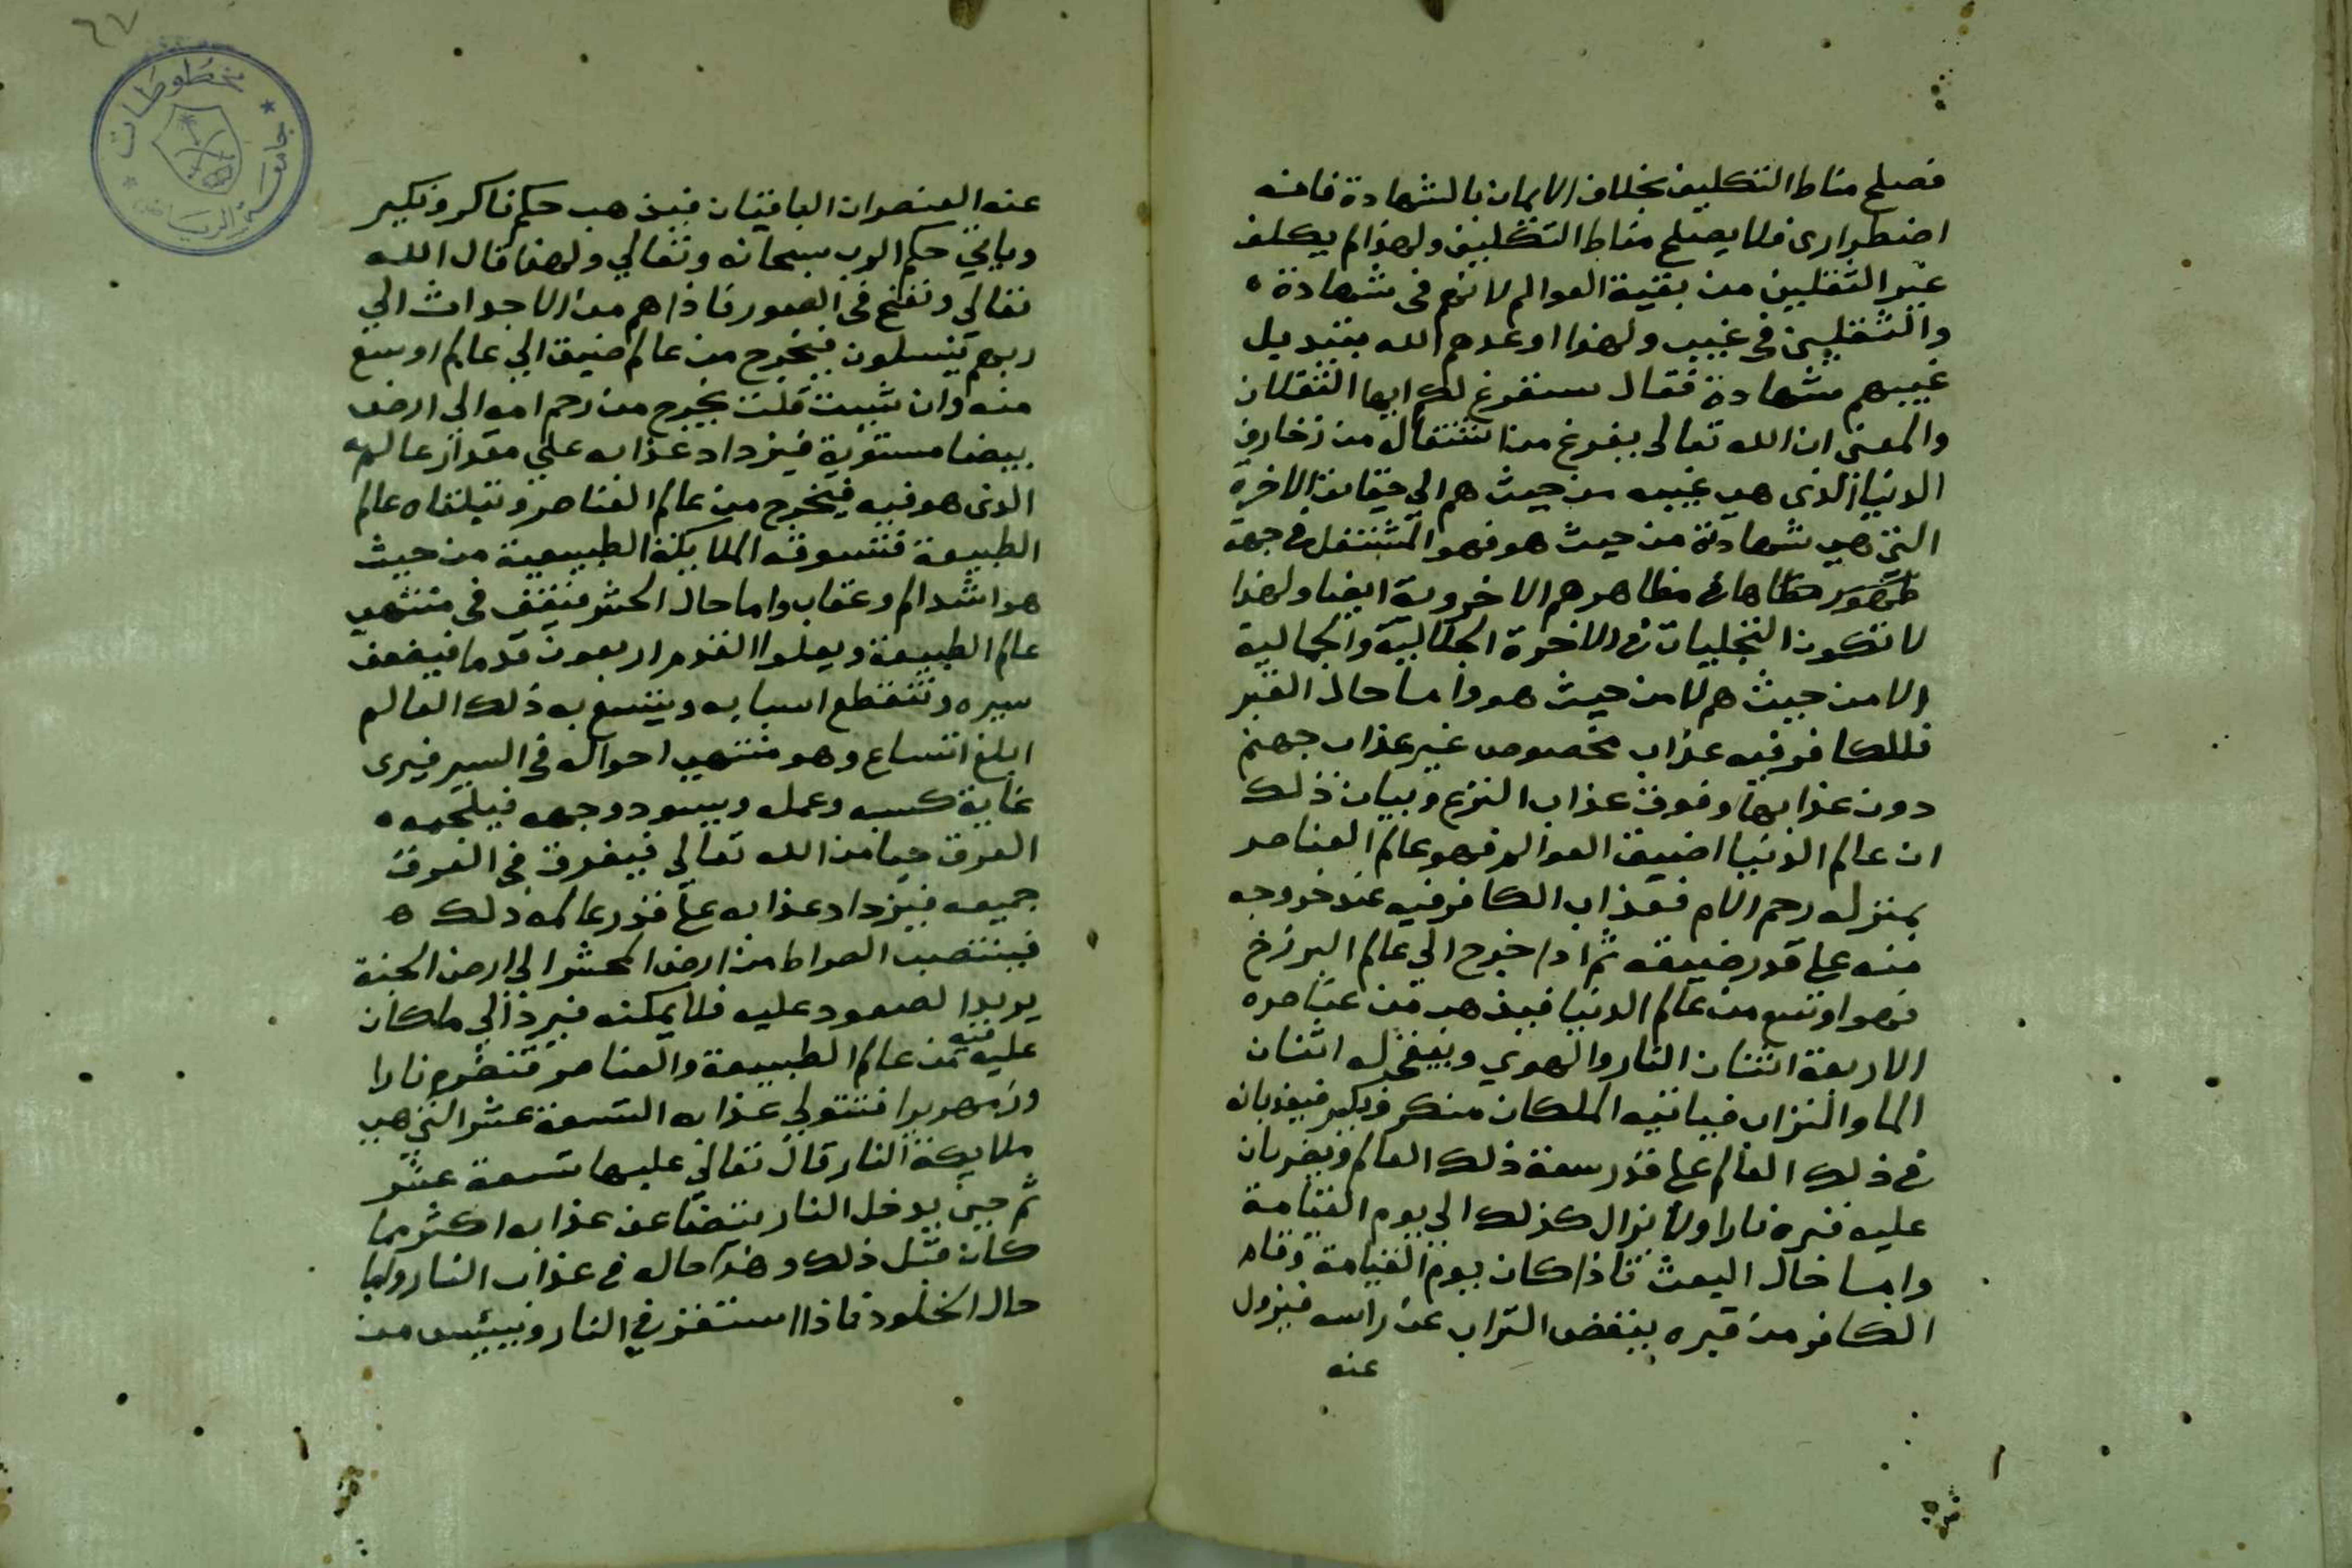 فصلح مناط التكليف بخلاف الايمان بالشهادة فانه
اضطرارى فلا يصلح مناط التكليف ولهذا لم يكلف
غير الثقلين من بقية العوالم لانهم فى شهادة
والثقلين فى غيب ولهذا اوعدهم الله بتبديل
غيبهم شهادة فقال سنفرغ لكم ايها الثقلان
والمعنى ان الله تعالى يفرغ من اشتغاله من زخارف
الدنيا الذى هى غيبه من حيث هم الي حقايق الاخرة
التى هى شهادته من حيث هو فهو المشتغل فى جهة
ظهور مظاهرهم الاخروية ايضا ولهذا
لا تكون التجليات فى الاخرة الجلالية والجمالية
الا من حيث هم لا من حيث هو واما حال القبر
فللكافر فيه عذاب مخصوص غير عذاب جهنم
دون عذابها وفوق عذاب النزع وبيان ذلك
ان عالم الدنيا اضيق العوالم فهو عالم العناصر
بمنزله رحم الام فعذاب الكافر فيه عند خروجه
منه على قدر ضيقه ثم اذا خرج الي عالم البرزخ
فهو اوسع من عالم الدنيا فيذهب من عناصره
الاربعة اثنان النار والهوي ويبقى له اثنان
الما والتراب فياتيه الملكان منكر ونكير فيعذبانه
فى ذلك العالم على قدر سعة ذلك العالم ويضربان
عليه قبره نارا ولا يزال كذلك الي يوم القيامة
واما حال البعث فاذا كان يوم القيامة وقام
الكافر من قبره ينفض التراب عن راسه فيزول
عنه
٦٧
مخطوطات
جامعة الرياض
عنه العنصران الباقيان فيذهب حكم ناكر ونكير
وياتي حكم الرب سبحانه وتعالي ولهذا قال الله
تعالي ونفخ فى الصور فاذا هم من الاجداث الي
ربهم ينسلون فيخرج من عالم ضيق الي عالم اوسع
منه وان شيت قلت يخرج من رحم امه الي ارض
بيضا مستوية فيزداد عذابه علي مقدار عالمه
الذى هو فيه فيخرج من عالم العناصر ويتلقاه عالم
الطبيعة فتسوقه الملايكة الطبيعية من حيث
هو اشد الم وعقاب واما حال الحشر فيقف فى منتهى
عالم الطبيعة ويعلوا القدم اربعون قدما فيضعف
سيره وتنقطع اسبابه ويتسع به ذلك العالم
ابلغ اتساع وهو منتهى احواله فى السير فيرى
غاية كسبه وعمله ويسود وجهه فيلجمه
العرق حيا من الله تعالي فيغرق فى العرق
جميعه فيزداد عذابه على قدر عالمه ذلك ه
فينتصب الصراط من ارض المحشر الي ارض الجنة
يريد الصعود عليه فلا يمكنه فيرد الي ماكان
عليه فيه من عالم الطبيعة والعناصر فتضرم نارا
وزمهريرا فتتولي عذابه التسعة عشر التي هى
ملايكة النار قال تعالي عليها تسعة عشر
ثم حين يدخل النار يتضاعف عذابه اكثر مما
كان قبل ذلك وهذا حاله فى عذاب النار واما
حال الخلود فاذا استقر في النار ويئس من